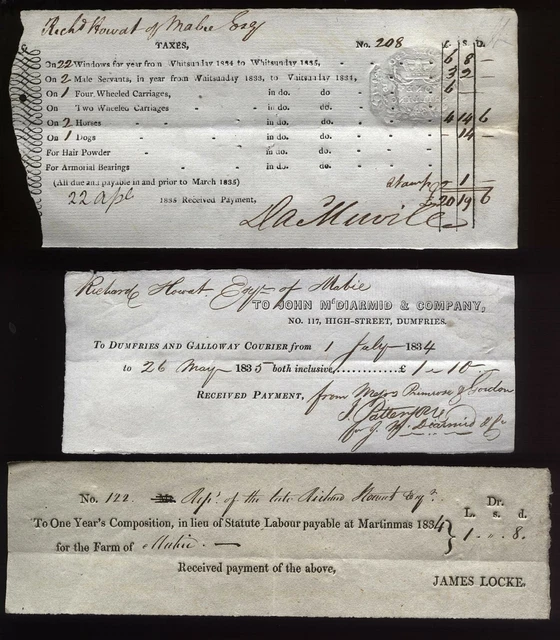 Richd Howat of Mabie Esqr
TAXES, No. 208 £. S. D.
On 22 Windows for year from Whitsunday 1834 to Whitsunday 1835, - 6 8 -
On 2 Male Servants, in year from Whitsunday 1833, to Whitsunday 1834, 3 2 -
On 1 Four Wheeled Carriages, - in do. do - - 6 -
On Two Wheeled Carriages - in do. do. - -
On 2 Horses - - - in do. do. - - 4 14 6
On 1 Dogs - - - in do. do. - - 14
For Hair Powder - - in do. do. - -
For Armorial Bearings - in do. do. - -
(All due and payable in and prior to March 1835) Stamp 1 -
22 Apl 1835 Received Payment, £20 19 6
Richard Howat Esqr of Mabie
TO JOHN McDIARMID & COMPANY,
NO. 117, HIGH-STREET, DUMFRIES.
To DUMFRIES AND GALLOWAY COURIER from 1 July 1834
to 26 May 1835 both inclusive,............£ 1 " 10
RECEIVED PAYMENT, from Messrs Primrose & Gordon
J. McDiarmid & Co
No. 122. Repr of the late Richard Howat Esqr Dr.
L. s. d.
To One Year's Composition, in lieu of Statute Labour payable at Martinmas 1834 } 1 . " . 8.
for the Farm of Mabie. —
Received payment of the above,
JAMES LOCKE.